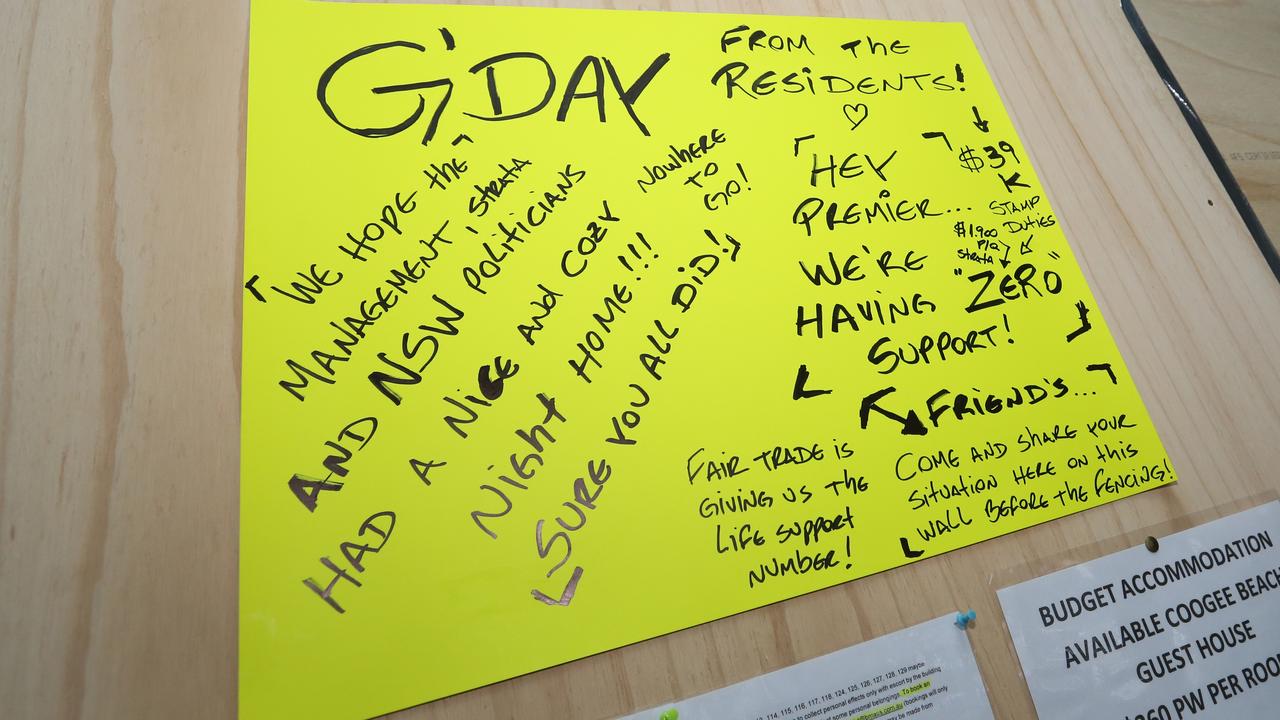 G'DAY
FROM THE
RESIDENTS!
"WE HOPE THE
MANAGEMENT, STRATA
AND NSW POLITICIANS
HAD A NICE AND COZY
NIGHT HOME!!!
SURE YOU ALL DID!
NOWHERE
TO
GO!
HEY
PREMIER...
WE'RE
HAVING "ZERO"
SUPPORT!
$39
K
STAMP
DUTIES
$1,900
P/Q
STRATA
FRIEND'S...
COME AND SHARE YOUR
SITUATION HERE ON THIS
WALL BEFORE THE FENCING!
FAIR TRADE IS
GIVING US THE
LIFE SUPPORT
NUMBER!
BUDGET ACCOMMODATION
AVAILABLE COOGEE BEACH
GUEST HOUSE
PW PER ROO
114, 115, 116, 117, 118, 124, 125, 126, 127, 128, 129 maybe
to collect personal effects only with escort by the building
some personal belongings. To book an
(bookings will only
may be made from